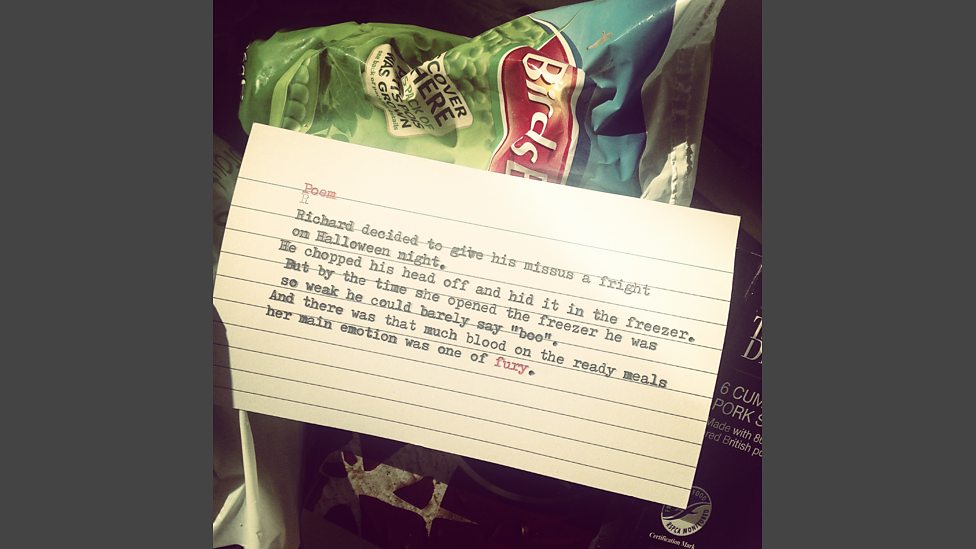 COVER
HERE
PACK OF
WAS GROWN
Birds
Poem
Richard decided to give his missus a fright
on Halloween night.
He chopped his head off and hid it in the freezer.
But by the time she opened the freezer he was
so weak he could barely say "boo".
And there was that much blood on the ready meals
her main emotion was one of fury.
6 CUM
PORK S
Made with 8
red British po
RSPCA MONITORED
Certification Mark